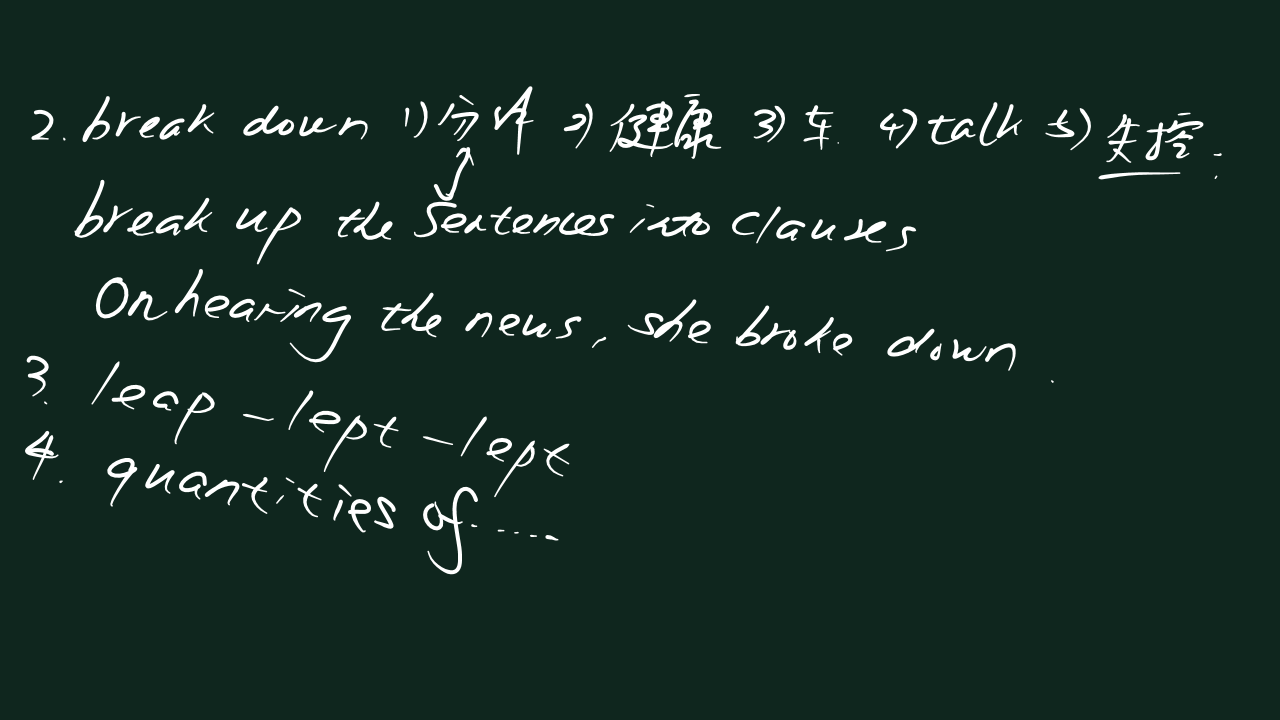 2. break down 1)分解 2)健康 3)车 4)talk 5)失控.
break up the sentences into clauses
On hearing the news, she broke down.
3. leap - lept - lept
4. quantities of ......